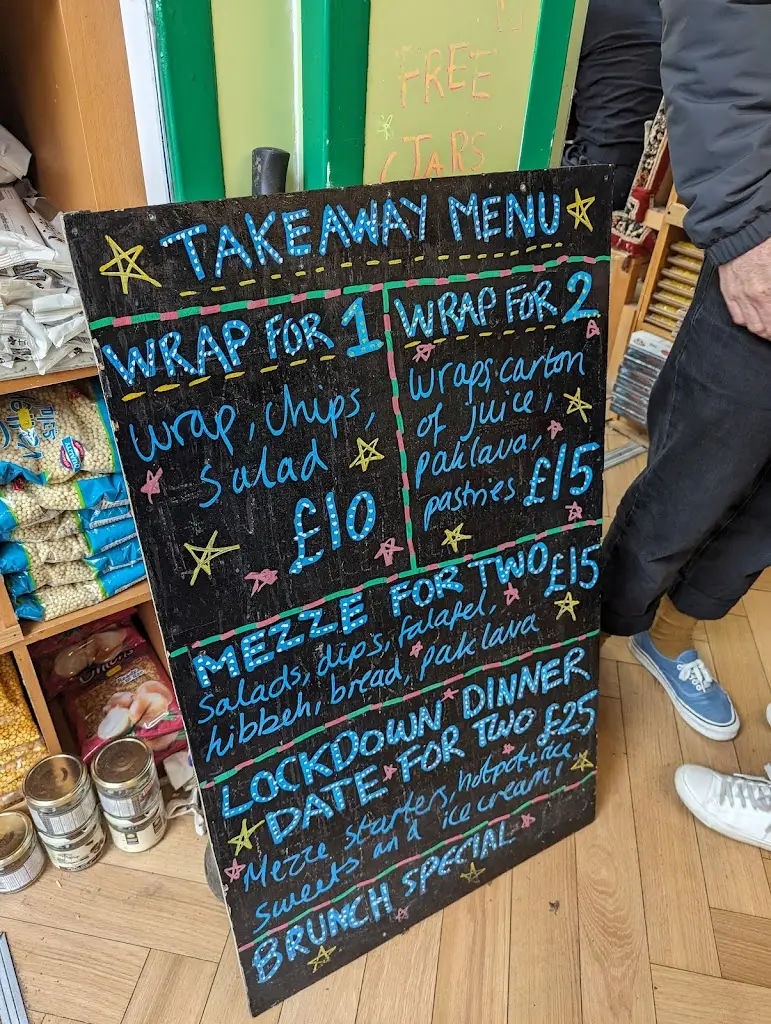 FREE
JARS
TAKEAWAY MENU
WRAP FOR 1
wrap, chips,
salad
£10
WRAP FOR 2
wraps, carton
of juice,
paklava,
pastries £15
MEZZE FOR TWO £15
Salads, dips, falafel,
kibbeh, bread, paklava
LOCKDOWN DINNER
DATE FOR TWO £25
Mezze starters, hotpot, rice
sweets and icecream!
BRUNCH SPECIAL